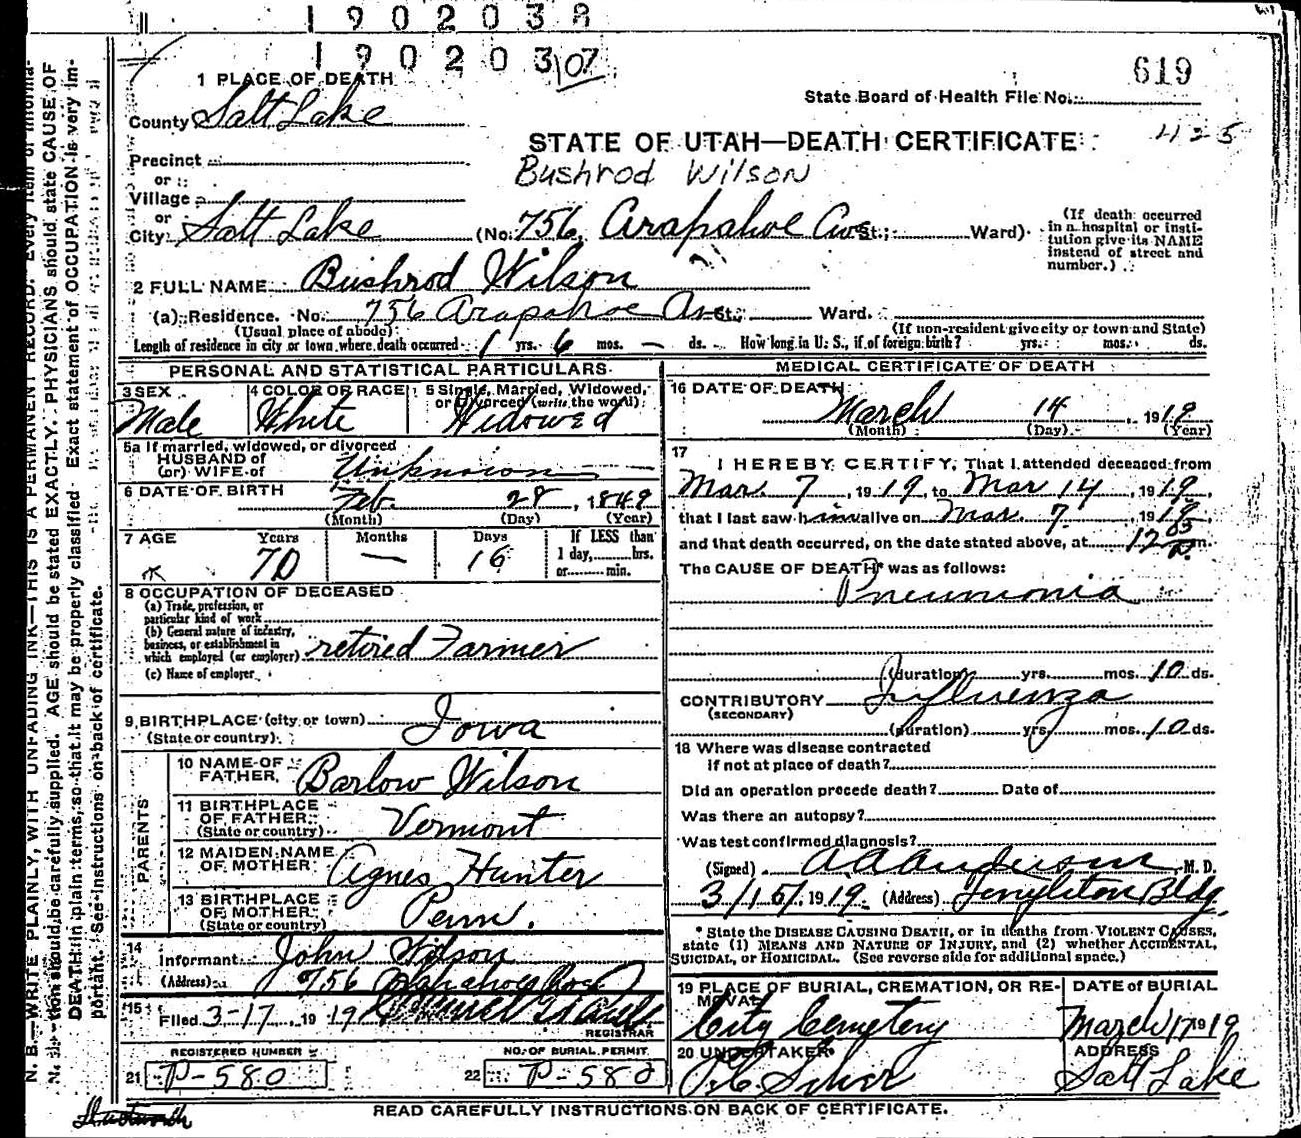 190203
190203
107
619
1 PLACE OF DEATH
State Board of Health File No.
County Salt Lake
STATE OF UTAH—DEATH CERTIFICATE
425
Precinct
Bushrod Wilson
or
Village
or
City Salt Lake (No. 756, Arapahoe Ave St.; Ward)
(If death occurred in a hospital or institution give its NAME instead of street and number.)
2 FULL NAME Bushrod Wilson
(a) Residence. No. 756 Arapahoe Av. St., Ward.
(Usual place of abode) (If non-resident give city or town and State)
Length of residence in city or town where death occurred 1 yrs. 6 mos. — ds. How long in U. S., if of foreign birth? yrs. mos. ds.
PERSONAL AND STATISTICAL PARTICULARS
3 SEX Male
4 COLOR OR RACE White
5 Single, Married, Widowed, or Divorced (write the word) Widowed
5a If married, widowed, or divorced
HUSBAND of
(or) WIFE of Unknown
6 DATE OF BIRTH Feb. 28, 1849
(Month) (Day) (Year)
7 AGE Years Months Days If LESS than
70 — 16 1 day, hrs.
or min.
8 OCCUPATION OF DECEASED
(a) Trade, profession, or
particular kind of work
(b) General nature of industry,
business, or establishment in
which employed (or employer) retired Farmer
(c) Name of employer
9 BIRTHPLACE (city or town) Iowa
(State or country)
PARENTS
10 NAME OF FATHER Barlow Wilson
11 BIRTHPLACE OF FATHER (State or country) Vermont
12 MAIDEN NAME OF MOTHER Agnes Hunter
13 BIRTHPLACE OF MOTHER (State or country) Penn.
14 Informant John Wilson
(Address) 756
15 Filed 3-17, 1919
REGISTRAR
REGISTERED NUMBER
21 P-580
NO. OF BURIAL PERMIT
22 P-580
MEDICAL CERTIFICATE OF DEATH
16 DATE OF DEATH
March 14, 1919
(Month) (Day) (Year)
17
I HEREBY CERTIFY, That I attended deceased from
Mar. 7, 1919, to Mar 14, 1919,
that I last saw him alive on Mar. 7, 1919
and that death occurred, on the date stated above, at 12 m.
The CAUSE OF DEATH* was as follows:
Pneumonia
(duration) yrs. mos. 10 ds.
CONTRIBUTORY Influenza
(SECONDARY)
(duration) yrs. mos. 10 ds.
18 Where was disease contracted
if not at place of death?
Did an operation precede death? Date of
Was there an autopsy?
Was test confirmed diagnosis?
(Signed) A A Anderson M. D.
3/15/1919 (Address) Bldg.
* State the DISEASE CAUSING DEATH, or in deaths from VIOLENT CAUSES,
state (1) MEANS AND NATURE OF INJURY, and (2) whether ACCIDENTAL,
SUICIDAL, or HOMICIDAL. (See reverse side for additional space.)
19 PLACE OF BURIAL, CREMATION, OR REMOVAL
City Cemetery
DATE of BURIAL
March 17 1919
20 UNDERTAKER
ADDRESS
Salt Lake
READ CAREFULLY INSTRUCTIONS ON BACK OF CERTIFICATE.
N. B.—WRITE PLAINLY, WITH UNFADING INK—THIS IS A PERMANENT RECORD. Every item of informa-
tion should be carefully supplied. AGE should be stated EXACTLY. PHYSICIANS should state CAUSE OF
DEATH in plain terms, so that it may be properly classified. Exact statement of OCCUPATION is very im-
portant. See instructions on back of certificate.